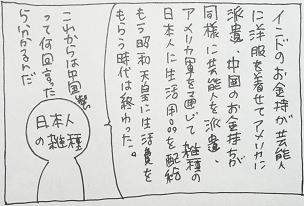 インドのお金持が芸能人
に洋服を着せてアメリカに
派遣、中国のお金持ちが
同様に芸能人を派遣、
アメリカ軍を通じて雑種の
日本人に生活用品を配給
もう昭和天皇に生活費を
もらう時代は終わった。
これからは中国製
って何回言った
らわかるんだ
日本人
の雑種